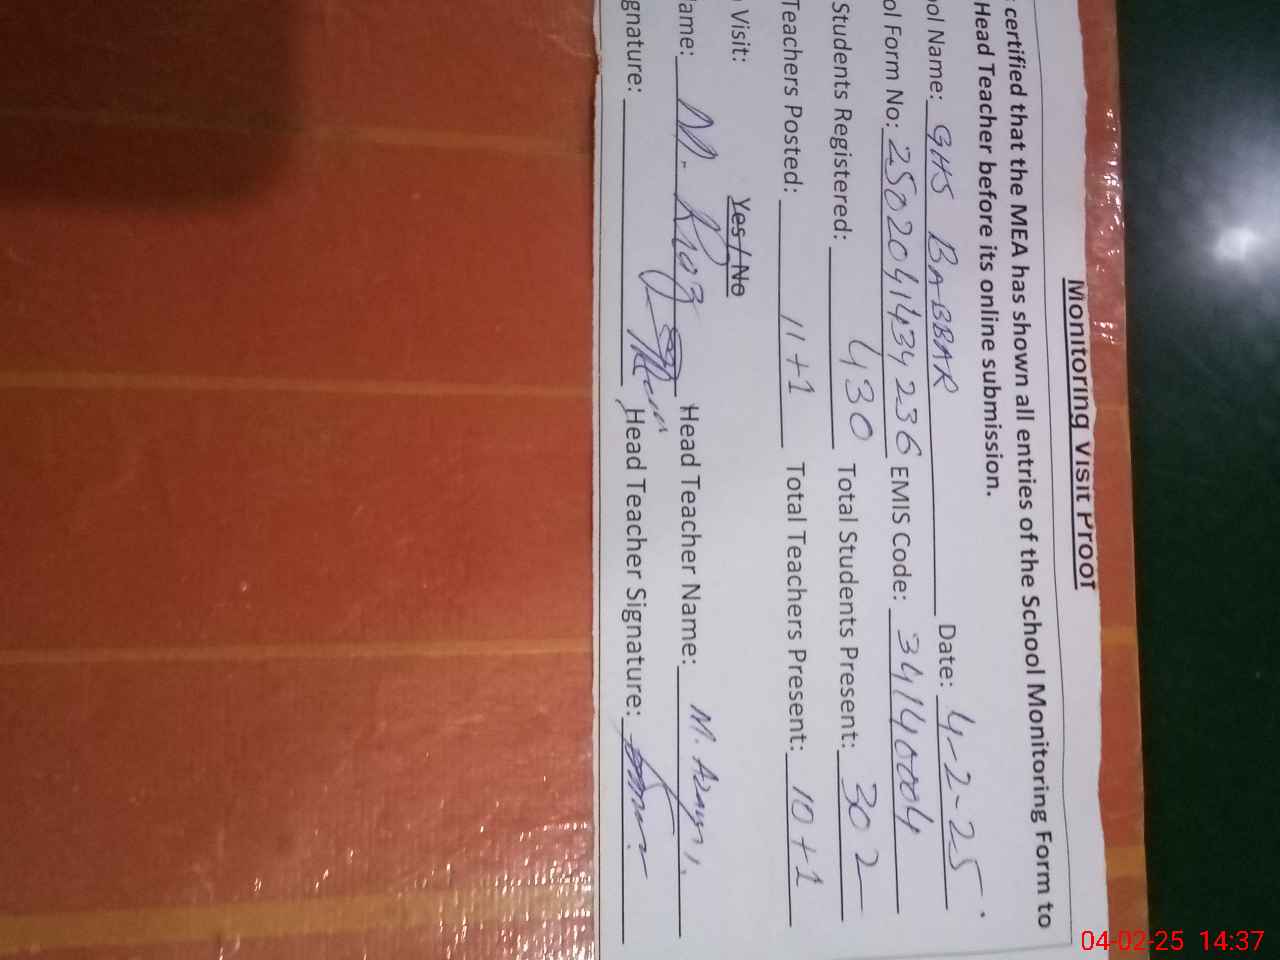 Monitoring Visit Proof
certified that the MEA has shown all entries of the School Monitoring Form to
Head Teacher before its online submission.
ool Name: GHS BABBAR Date: 4-2-25
ol Form No: 2502041434236 EMIS Code: 34140004
Students Registered: 430 Total Students Present: 302
Teachers Posted: 11+1 Total Teachers Present: 10+1
Visit: Yes/No
ame: M. Head Teacher Name: M.
gnature: Head Teacher Signature:
04-02-25 14:37